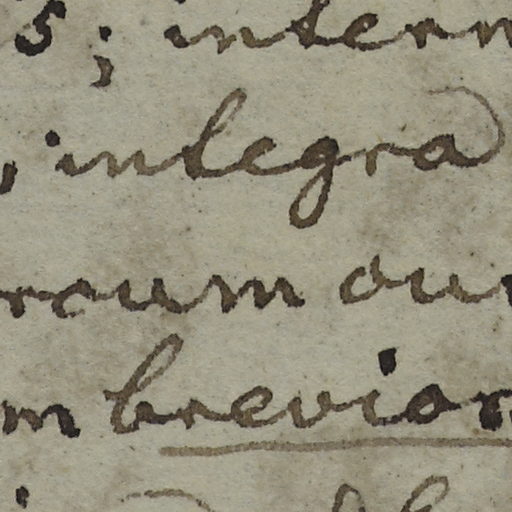 5; intern
, integra
rcum ou
m brevior